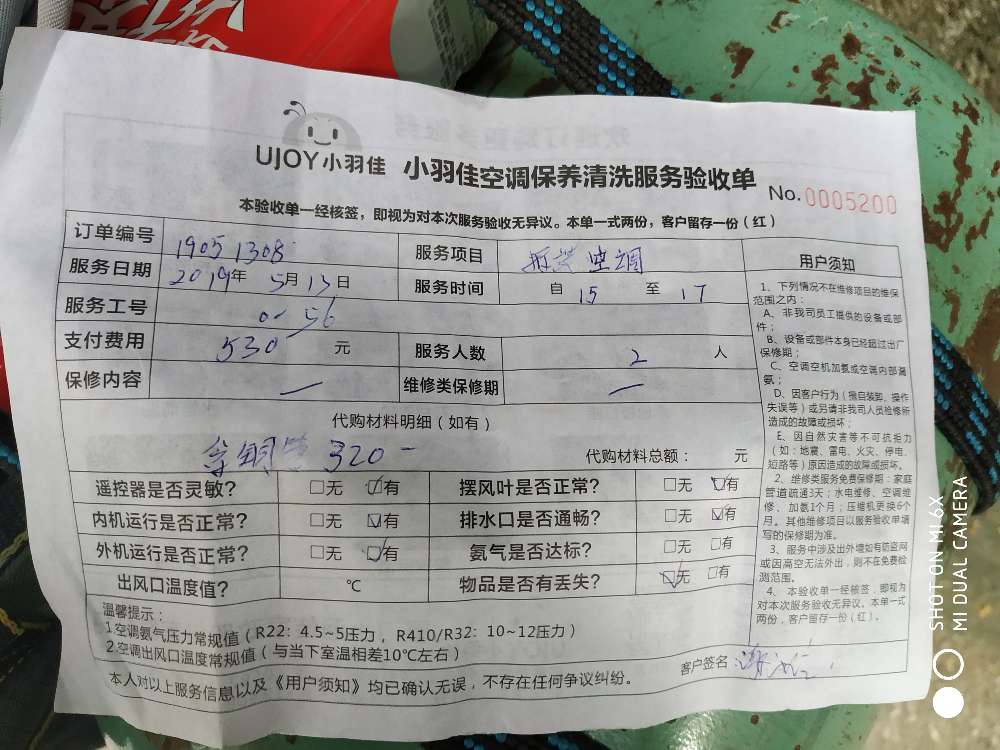 UJOY小羽佳 小羽佳空调保养清洗服务验收单 No.0005200
本验收单一经核签，即视为对本次服务验收无异议。本单一式两份，客户留存一份（红）
订单编号 19051308 服务项目 拆装空调
服务日期 2019年5月13日 服务时间 自 15 至 17
服务工号 56
支付费用 530 元 服务人数 2 人
保修内容 — 维修类保修期 —
代购材料明细（如有）
铜管 320 代购材料总额： 元
遥控器是否灵敏？ □无 ☑有 摆风叶是否正常？ □无 ☑有
内机运行是否正常？ □无 ☑有 排水口是否通畅？ □无 ☑有
外机运行是否正常？ □无 ☑有 氨气是否达标？ □无 □有
出风口温度值？ ℃ 物品是否有丢失？ ☑无 □有
温馨提示：
1.空调氨气压力常规值（R22：4.5~5压力，R410/R32：10~12压力）
2.空调出风口温度常规值（与当下室温相差10℃左右）
本人对以上服务信息以及《用户须知》均已确认无误，不存在任何争议纠纷。
客户签名
用户须知
1、下列情况不在维修项目的维保
范围之内：
A、非我司员工提供的设备或部
件；
B、设备或部件本身已经超过出厂
保修期；
C、空调空机加氨或空调内部漏
氨；
D、因客户行为（擅自装卸、操作
失误等）或另请非我司人员检修所
造成的故障或损坏；
E、因自然灾害等不可抗拒力
（如：地震、雷电、火灾、停电、
短路等）原因造成的故障或损坏。
2、维修类服务免费保修期：家庭
管道疏通3天；水电维修、空调维
修、加氨1个月；压缩机更换6个
月。其他维修项目以服务验收单填
写的保修期为准。
3、服务中涉及出外墙如有防盗网
或因高空无法外出，则不在免费检
测范围。
4、本验收单一经核签，即视为
对本次服务验收无异议。本单一式
两份，客户留存一份（红）。
SHOT ON MI 6X
MI DUAL CAMERA